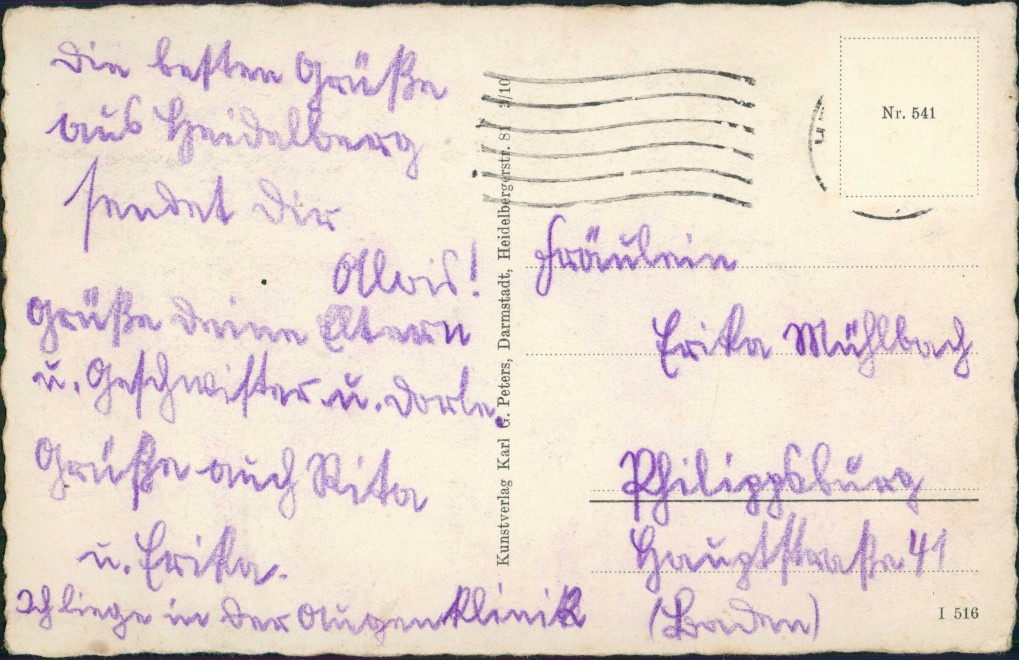 Die besten Grüße
aus Heidelberg
sendet Dir
Alois!
Grüße deine Eltern
u. Geschwister u. Dorle.
Grüße auch Rita
u. Erika.
Ich liege in der Augenklinik
Kunstverlag Karl G. Peters, Darmstadt, Heidelbergerstr. 81 3/10
Nr. 541
Fräulein
Erika Mühlbach
Philippsburg
Hauptstraße 41
(Baden)
I 516